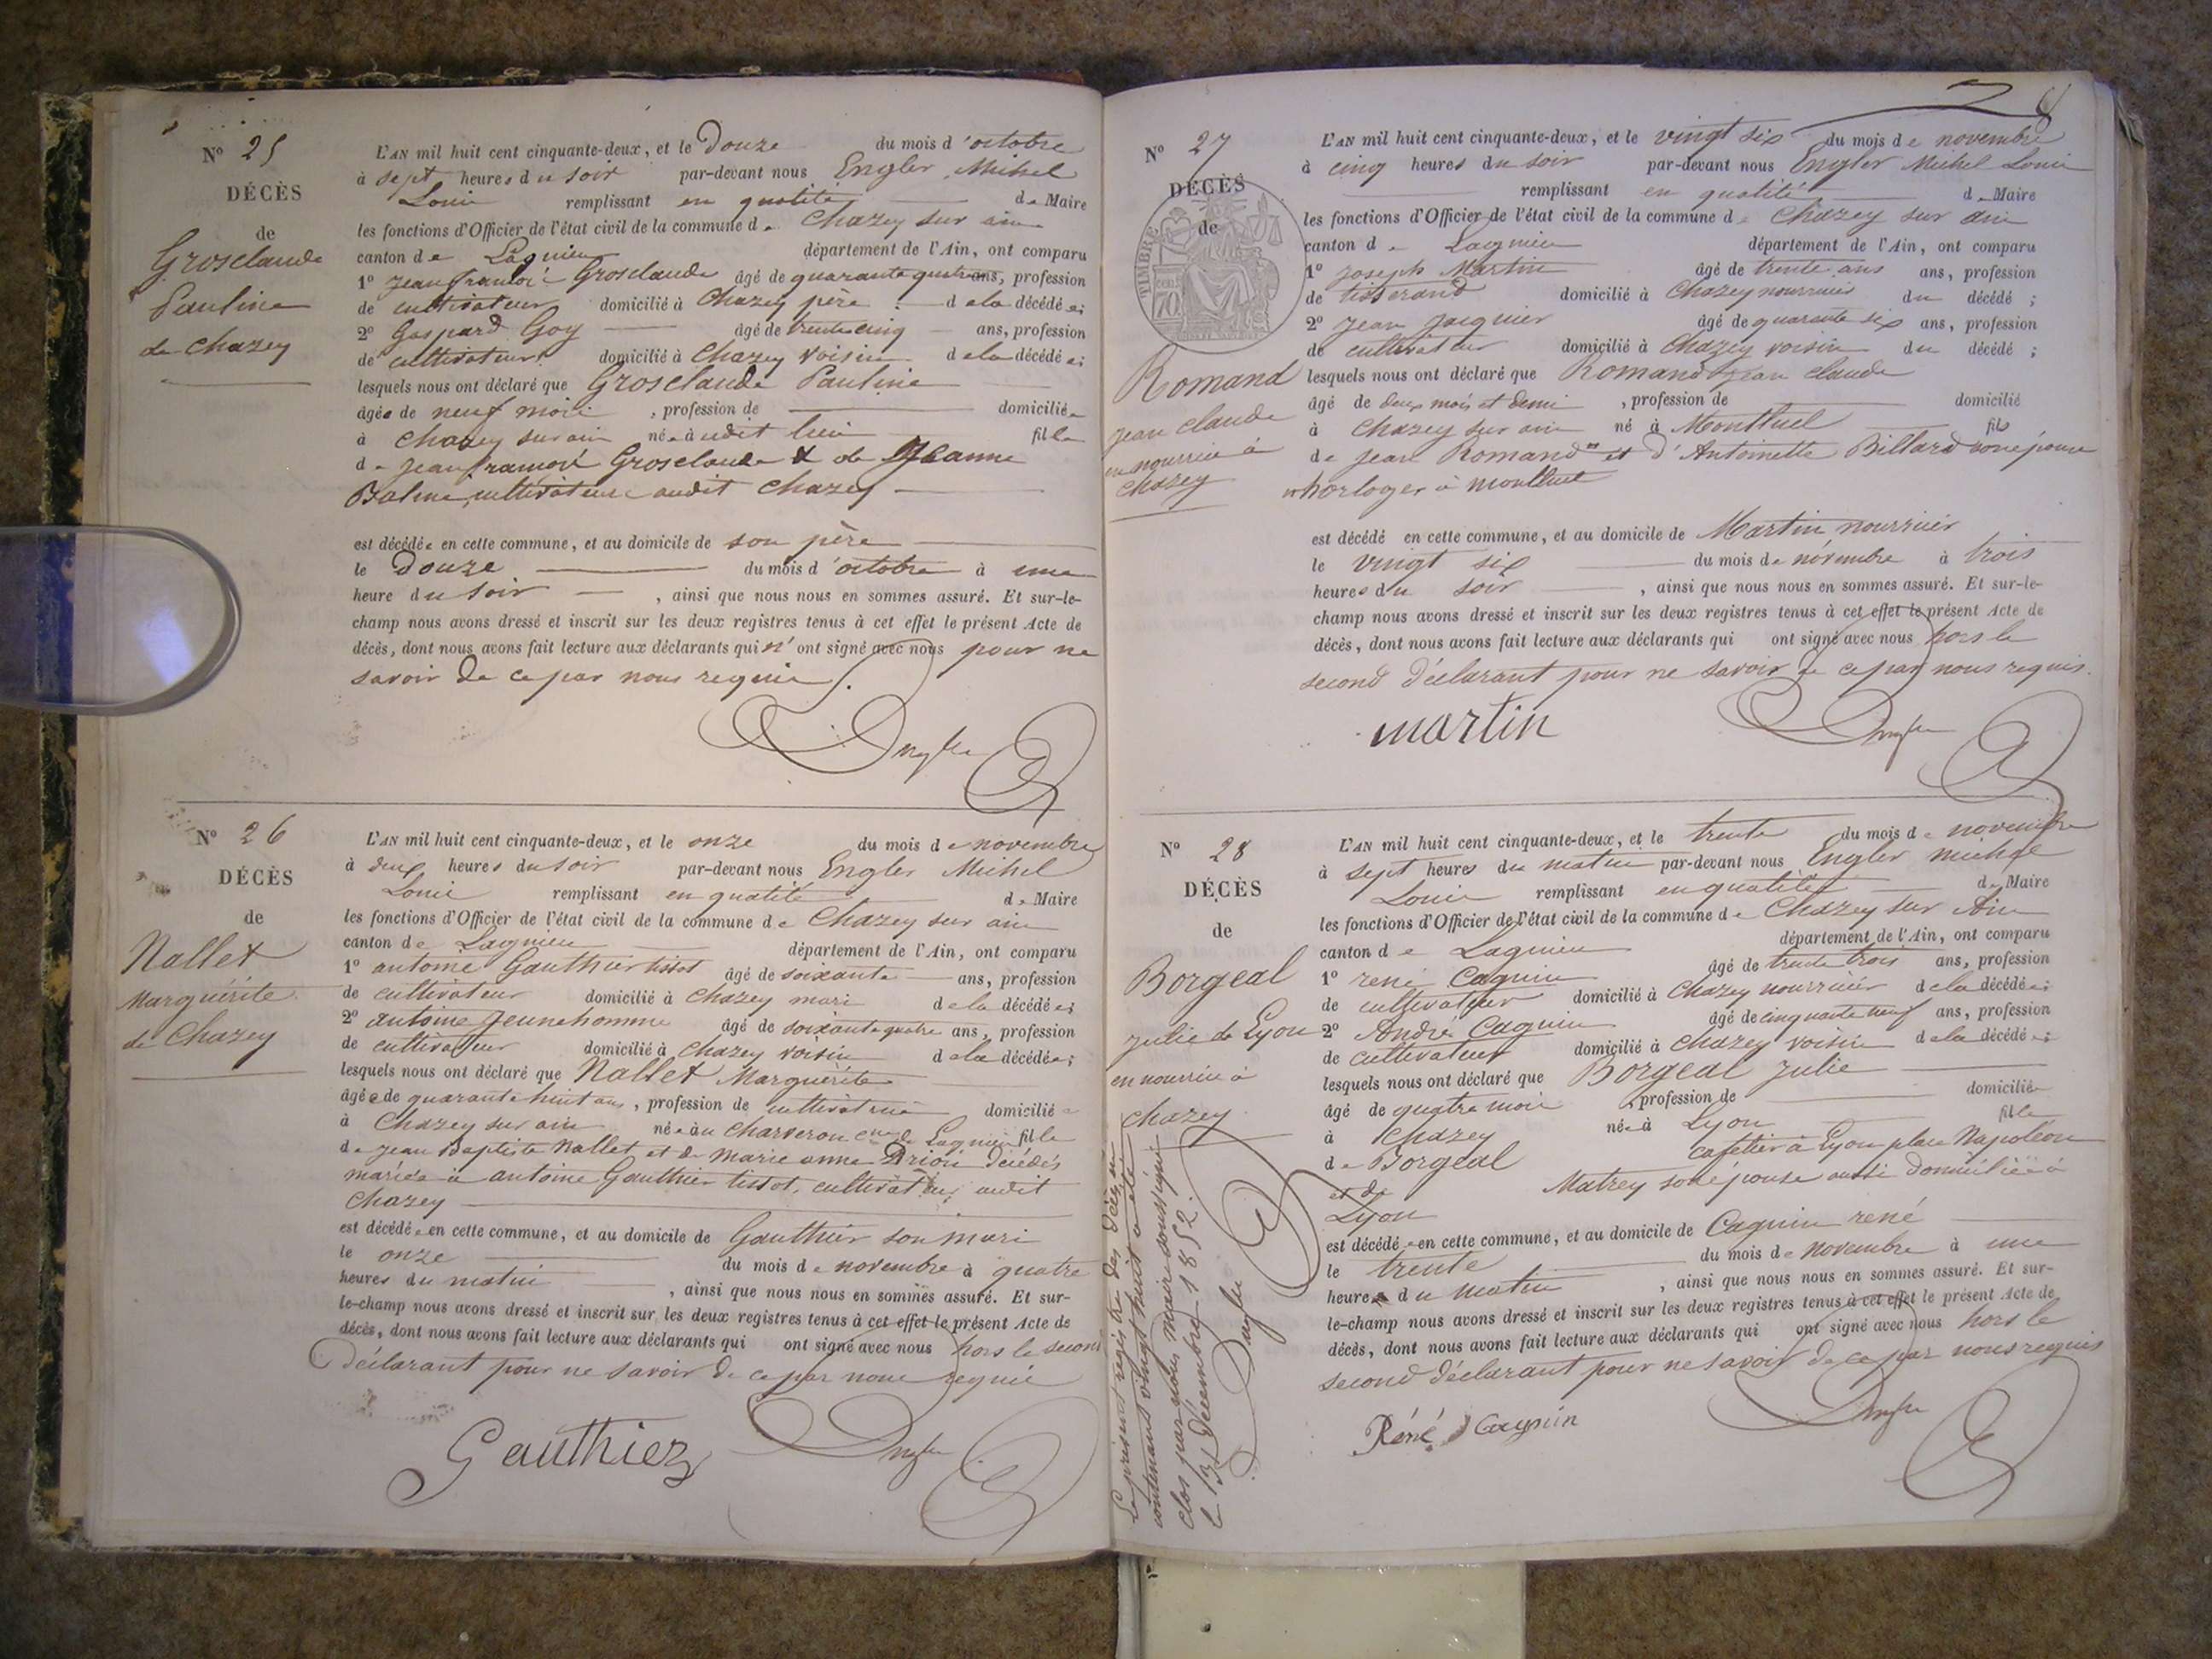 N° 25
DÉCÈS
de
Grosclaude
Pauline
de Chazey
L'AN mil huit cent cinquante-deux, et le Douze du mois d'octobre
à sept heures du soir par-devant nous Engler Michel
Louis remplissant en qualité de Maire
les fonctions d'Officier de l'état civil de la commune de Chazey sur ain
canton de Lagnieu département de l'Ain, ont comparu
1° jean francois Grosclaude âgé de quarante quatre ans, profession
de cultivateur domicilié à Chazey père de la décédée;
2° Gaspard Goy âgé de trente cinq ans, profession
de cultivateur domicilié à Chazey voisin de la décédée;
lesquels nous ont déclaré que Grosclaude Pauline
âgée de neuf mois , profession de domiciliée
à Chazey sur ain née audit lieu fille
de jean francois Grosclaude & de Jeanne
Balme, cultivateurs audit Chazey
est décédée en cette commune, et au domicile de son père
le Douze du mois d'octobre à une
heure du soir , ainsi que nous nous en sommes assuré. Et sur-le-
champ nous avons dressé et inscrit sur les deux registres tenus à cet effet le présent Acte de
décès, dont nous avons fait lecture aux déclarants qui n'ont signé avec nous pour ne
savoir de ce par nous requis.
Engler
N° 26
DÉCÈS
de
Nallet
Marguérite
de Chazey
L'AN mil huit cent cinquante-deux, et le onze du mois de novembre
à deux heures du soir par-devant nous Engler Michel
Louis remplissant en qualité de Maire
les fonctions d'Officier de l'état civil de la commune de Chazey sur ain
canton de Lagnieu département de l'Ain, ont comparu
1° antoine Gauthier tissot âgé de soixante ans, profession
de cultivateur domicilié à Chazey mari de la décédée;
2° antoine Jeunehomme âgé de soixante quatre ans, profession
de cultivateur domicilié à Chazey voisin de la décédée;
lesquels nous ont déclaré que Nallet Marguérite
âgée de quarante huit ans, profession de cultivatrice domiciliée
à Chazey sur ain née au Charveron cne de Lagnieu fille
de jean Baptiste Nallet et de marie anne décédés
mariée à antoine Gauthier tissot, cultivateur audit
Chazey
est décédée en cette commune, et au domicile de Gauthier son mari
le onze du mois de novembre à quatre
heures du matin , ainsi que nous nous en sommes assuré. Et sur-
le-champ nous avons dressé et inscrit sur les deux registres tenus à cet effet le présent Acte de
décès, dont nous avons fait lecture aux déclarants qui ont signé avec nous hors le second
déclarant pour ne savoir de ce par nous requis
Gauthier
Engler
N° 27
DÉCÈS
de
TIMBRE
70
Romand
jean claude
en nourrice à
Chazey
L'AN mil huit cent cinquante-deux, et le vingt six du mois de novembre
à cinq heures du soir par-devant nous Engler Michel Louis
remplissant en qualité de Maire
les fonctions d'Officier de l'état civil de la commune de Chazey sur ain
canton de Lagnieu département de l'Ain, ont comparu
1° joseph Martin âgé de trente ans ans, profession
de tisserand domicilié à Chazey nourricier du décédé;
2° jean jacquier âgé de quarante six ans, profession
de cultivateur domicilié à Chazey voisin du décédé;
lesquels nous ont déclaré que Romand jean claude
âgé de deux mois et demi , profession de domicilié
à Chazey sur ain né à Montluel fils
de jean Romand et d'Antoinette Billard son épouse
horloger à montluel
est décédé en cette commune, et au domicile de Martin nourricier
le vingt six du mois de novembre à trois
heures du soir , ainsi que nous nous en sommes assuré. Et sur-le-
champ nous avons dressé et inscrit sur les deux registres tenus à cet effet le présent Acte de
décès, dont nous avons fait lecture aux déclarants qui ont signé avec nous hors le
second déclarant pour ne savoir de ce par nous requis.
martin
Engler
N° 28
DÉCÈS
de
Borgeal
julie de Lyon
en nourrice à
Chazey
L'AN mil huit cent cinquante-deux, et le trente du mois de novembre
à sept heures du matin par-devant nous Engler michel
Louis remplissant en qualité de Maire
les fonctions d'Officier de l'état civil de la commune de Chazey sur Ain
canton de Lagnieu département de l'Ain, ont comparu
1° rené Cagnin âgé de trente trois ans, profession
de cultivateur domicilié à Chazey nourricier de la décédée;
2° André Cagnin âgé de cinquante neuf ans, profession
de cultivateur domicilié à Chazey voisin de la décédée;
lesquels nous ont déclaré que Borgeal Julie
âgé de quatre mois , profession de domiciliée
à Chazey née à Lyon fille
de Borgeal cafetier à Lyon place Napoléon
et de Matrey son épouse aussi domiciliée à
Lyon
est décédée en cette commune, et au domicile de Cagnin rené
le trente du mois de novembre à une
heure du matin , ainsi que nous nous en sommes assuré. Et sur-
le-champ nous avons dressé et inscrit sur les deux registres tenus à cet effet le présent Acte de
décès, dont nous avons fait lecture aux déclarants qui ont signé avec nous hors le
second déclarant pour ne savoir de ce par nous requis
Réné Cagnin
Engler
Le présent registre des décès
contenant vingt huit actes
clos par nous maire soussigné
le 31 décembre 1852.
Engler